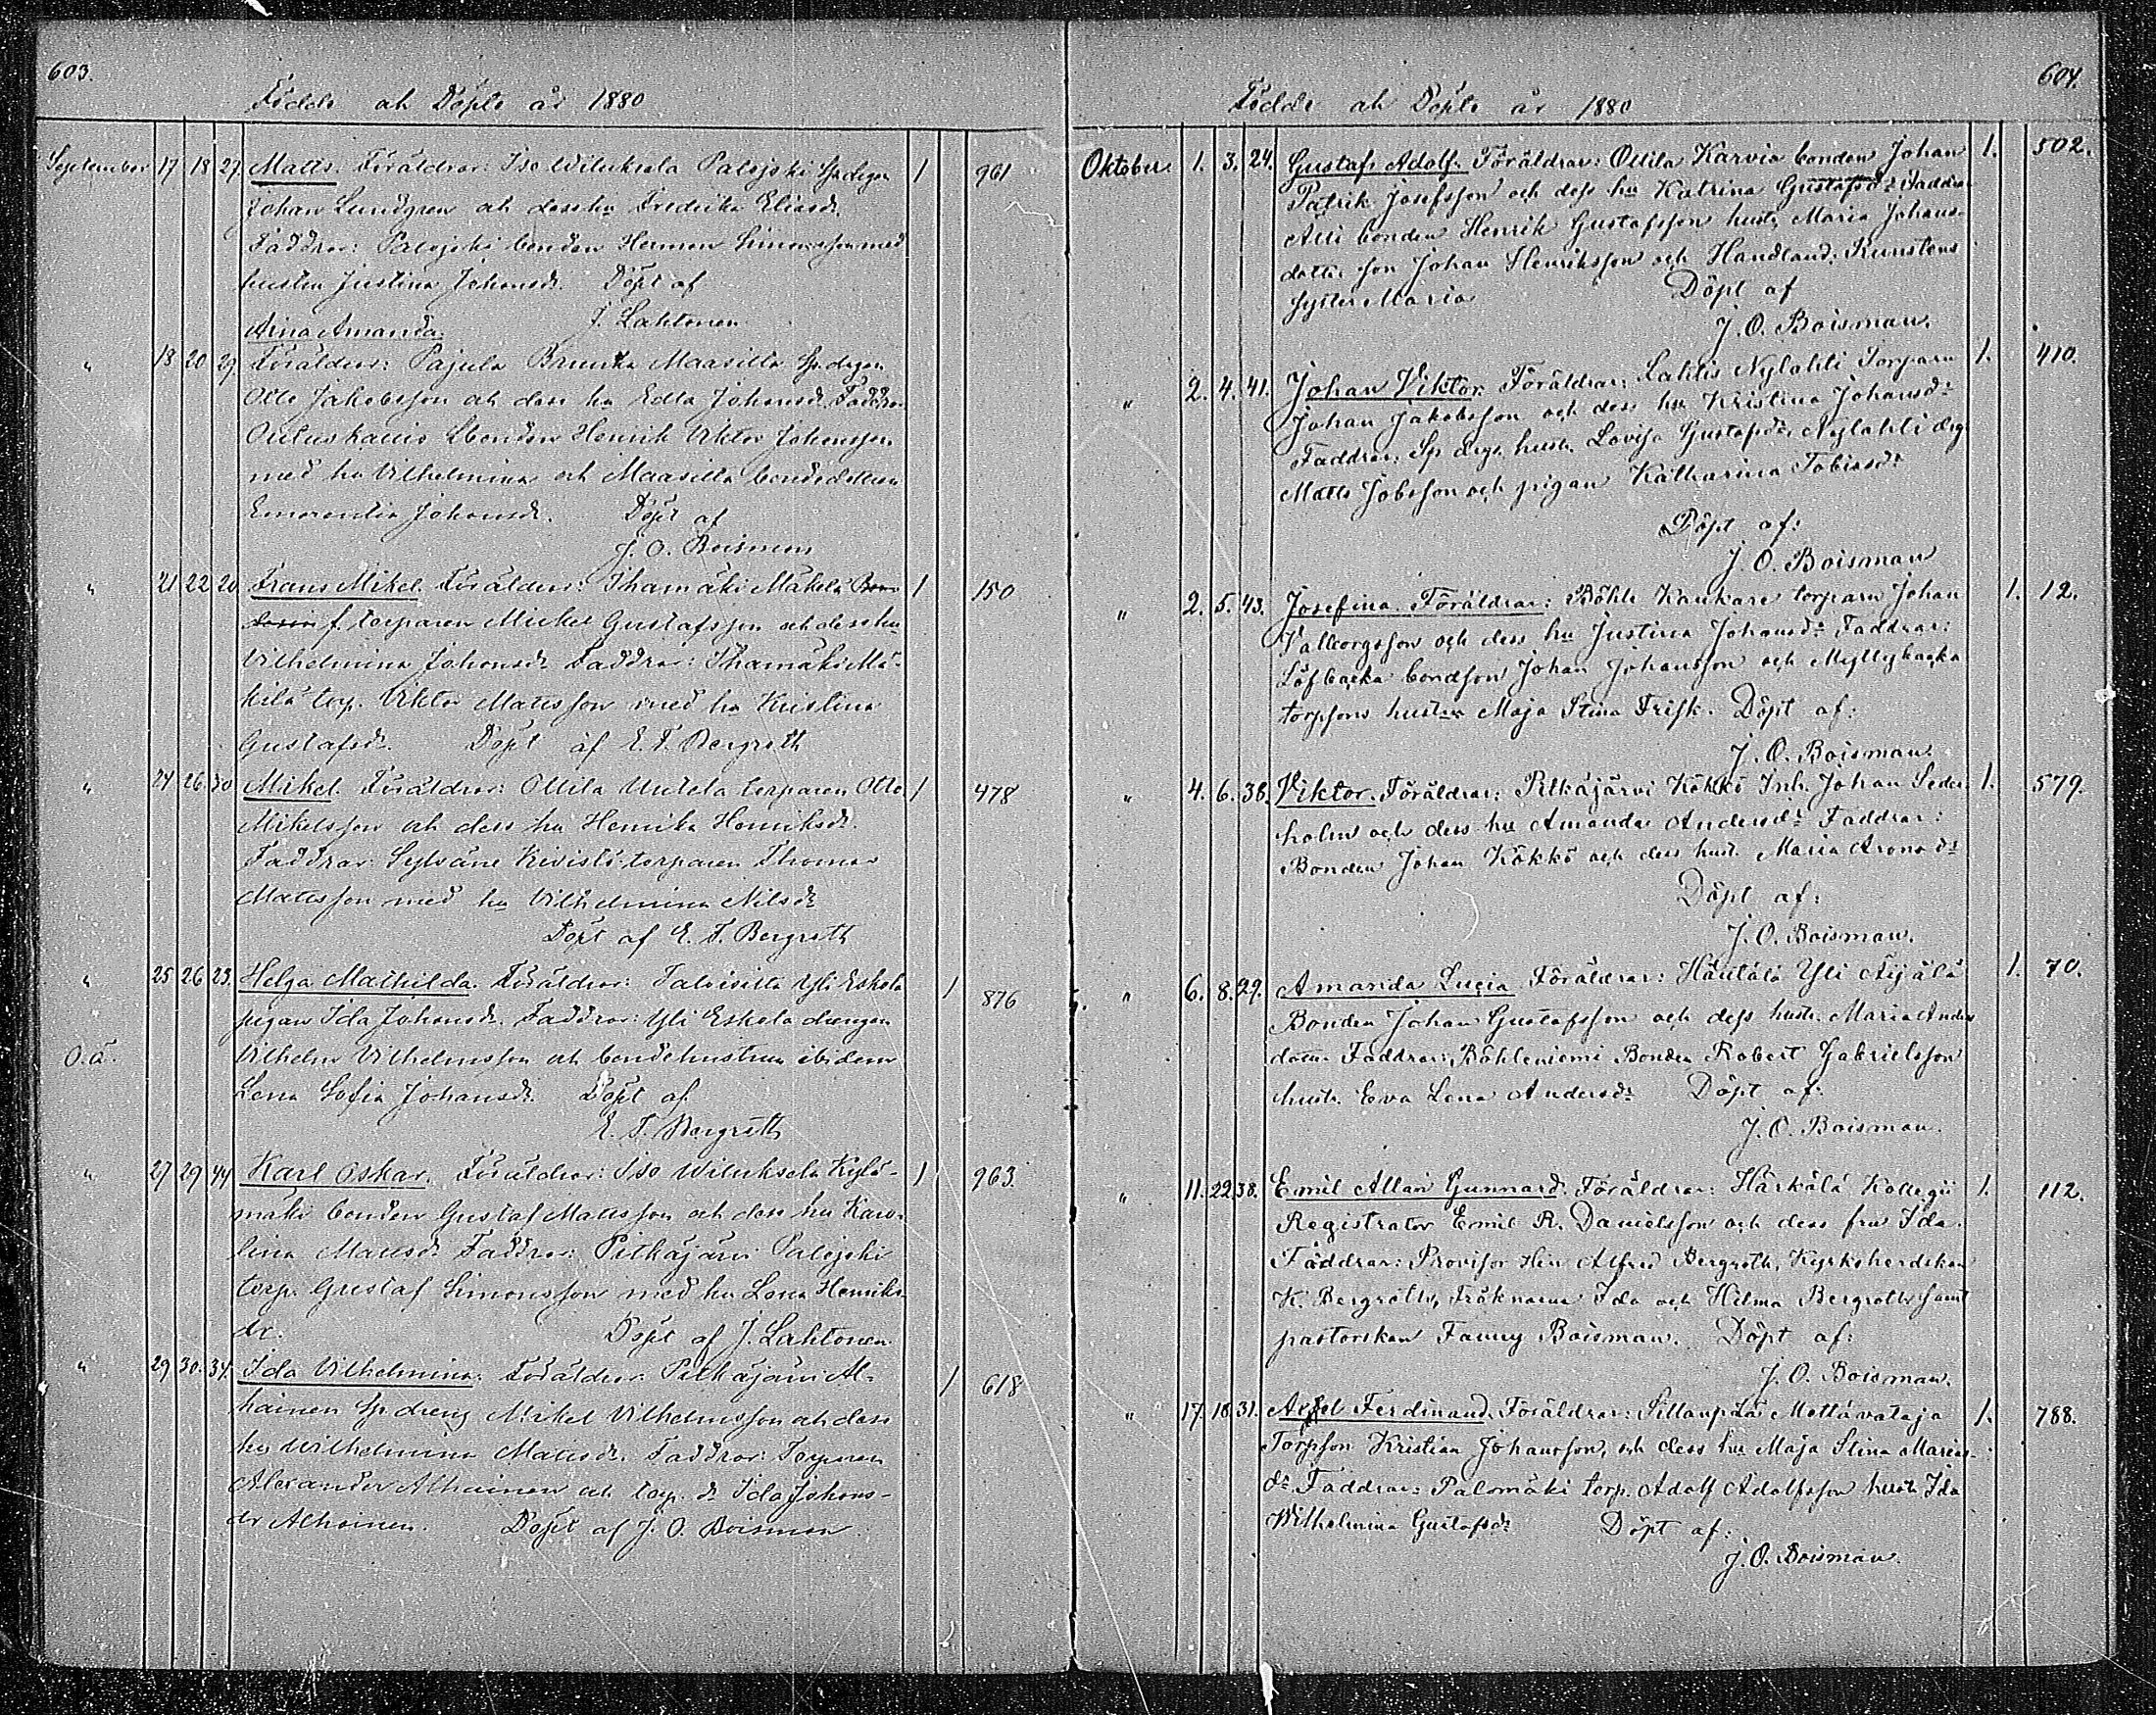 603.
Födde och Döpte år 1880
September 17 18 27. Matts. Föräldrar: Iso Wiluksela Palojoki Sp. drgn 1 961
Johan Lundgren och dess hu Fredrika Eliasdr.
Faddrar: Palojoki bonden Herman Simonsson med
hustru Justina Johansdr. Döpt af
J. Lahtonen
Aina Amanda.
" 18 20 29. Föräldrar: Pajula Maasilta Sp. drgn
Otto Jakobsson och dess hu Edla Johansdr. Faddrar
bonden Henrik Viktor Johansson
med hu Vilhelmina och Maasilta bondedottren
Emerentia Johansdr. Döpt af
J. O. Boisman
" 21 22 20 Frans Mikel. Föräldrar: Ihamäki Mäkelä 1 150
f. torparen Mickel Gustafsson och dess hu
Vilhelmina Johansdr Faddrar: Ihamäki Mä-
kilä torp. Viktor Matsson med hu Kristina
Gustafsdr. Döpt af E. F. Bergroth
" 24 26 30 Mikel. Föräldrar: Ottila Uutela torparen Otto 1 478
Mikelsson och dess hu Henrika Henriksdr.
Faddrar: Sylväne Kivistö torparen Thomas
Matsson med hu Vilhelmina Nilsdr
Döpt af E. F. Bergroth
" 25 26 23. Helga Mathilda. Föräldrar: Talvisilta Yli Eskola 1 876
pigan Ida Johansdr. Faddrar: Yli Eskola drengen
O.ä. Vilhelm Vilhelmsson och bondehustrun ibidem
Lena Sofia Johansdr. Döpt af
E. F. Bergroth
" 27 29 44 Karl Oskar. Föräldrar: Iso Wiluksela Kylä- 1 963.
mäki bonden Gustaf Matsson och dess hu Karo-
lina Matsdr. Faddrar: Pitkäjärvi Palojoki
torp. Gustaf Simonsson med hu Lena Henriks-
dr. Döpt af J. Lahtonen.
" 29 30. 34. Ida Vilhelmina. Föräldrar: Pitkäjärvi Al- 1 618
hainen Sp. dreng Mikel Vilhelmsson och dess
hu Wilhelmina Matsdr. Faddrar: Torparen
Alexander Alhainen och torp. dr Ida Johans-
dr Alhainen. Döpt af J. O. Boisman
604.
Födde och Döpte år 1880
Oktober. 1. 3. 24. Gustaf Adolf. Föräldrar: Ottila Karvia bonden Johan 1. 502.
Patrik Josefsson och dess hu Katrina Gustafsdr Faddrar
Alli bonden Henrik Gustafsson hustr. Maria Johans-
dotter son Johan Henriksson och Handland. Kunstens
syster Maria Döpt af
J. O. Boisman.
" 2. 4. 41. Johan Viktor. Föräldrar: Lahtis Nylahti Torparn 1. 410.
Johan Jakobsson och dess hu Kristina Johansdr
Faddrar: Sp drgs. hustr. Lovisa Gustafsdr, Nylahti drg.
Matts Jobsson och pigan Katharina Tobiasdr
Döpt af:
J. O. Boisman
" 2. 5. 43. Josefina. Föräldrar: Böhle Kankare torparn Johan 1. 12.
Valborgsson och dess hu Justina Johansdr Faddrar:
Löfbacka bondson Johan Johansson och Myllykacka
torpsons hustru Maja Stina Frisk. Döpt af:
J. O. Boisman
" 4. 6. 38. Viktor. Föräldrar: Pitkäjärvi Kökkö Inh. Johan Seder- 1. 579.
holm och dess hu Amanda Andersdr Faddrar:
Bonden Johan Kökkö och dess hust. Maria Aronsdr
Döpt af:
J. O. Boisman.
" 6. 8. 29. Amanda Lucia Föräldrar: Häntälä Yli Äijälä 1. 70.
Bonden Johan Gustafsson och dess hustr. Maria Anders
dotter Faddrar: Böhleniemi Bonden Robert Gabrielsson
hustr. Eva Lena Andersdr Döpt af:
J. O. Boisman.
" 11. 22. 38. Emil Allan Gunnard. Föräldrar: Härkälä Kollegii 1. 112.
Registrator Emil R. Danielsson och dess fru Ida.
Faddrar: Provisor Herr Alfred Bergroth, Kyrkoherdskan
K. Bergroth, Fröknarna Ida och Hilma Bergroth samt
pastorskan Fanny Boisman. Döpt af:
J. O. Boisman.
" 17. 18. 31. Axel Ferdinand. Föräldrar: Sillanpää Mottävataja 1. 788.
Torpson Kristian Johansson, och dess hu Maja Stina Marias-
dr. Faddrar: Palomäki torp. Adolf Adolfsson hustr. Ida
Wilhelmina Gustafsdr Döpt af:
J. O. Boisman.